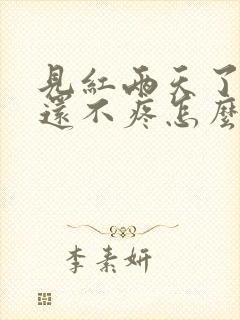 見紅兩天了
還不疼怎麼
李素妍